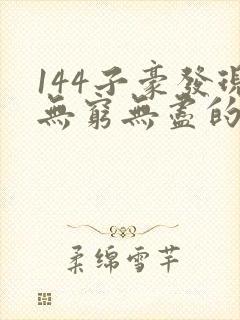 144子豪發現
無窮無盡的
柔綿雪芊